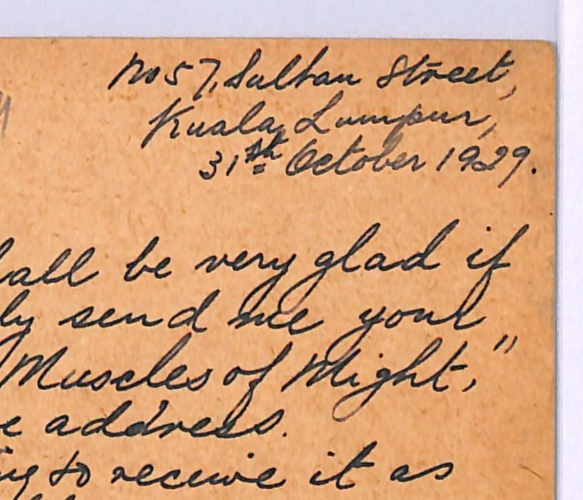 No 57, Sultan Street,
Kuala Lumpur,
31st October 1929.
hall be very glad if
ly send me your
Muscles of Might,"
e address.
ng to receive it as